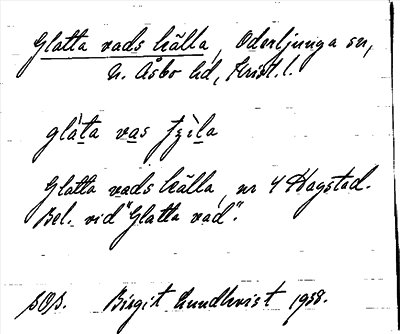 Glatta vads källa, Oderljunga sn,
N. Åsbo hd, Krist. l.
Glatta vads källa, nr 4 Hagstad.
Bel. vid "Glatta vad".
SOS. Birgit Lundkvist 1958.